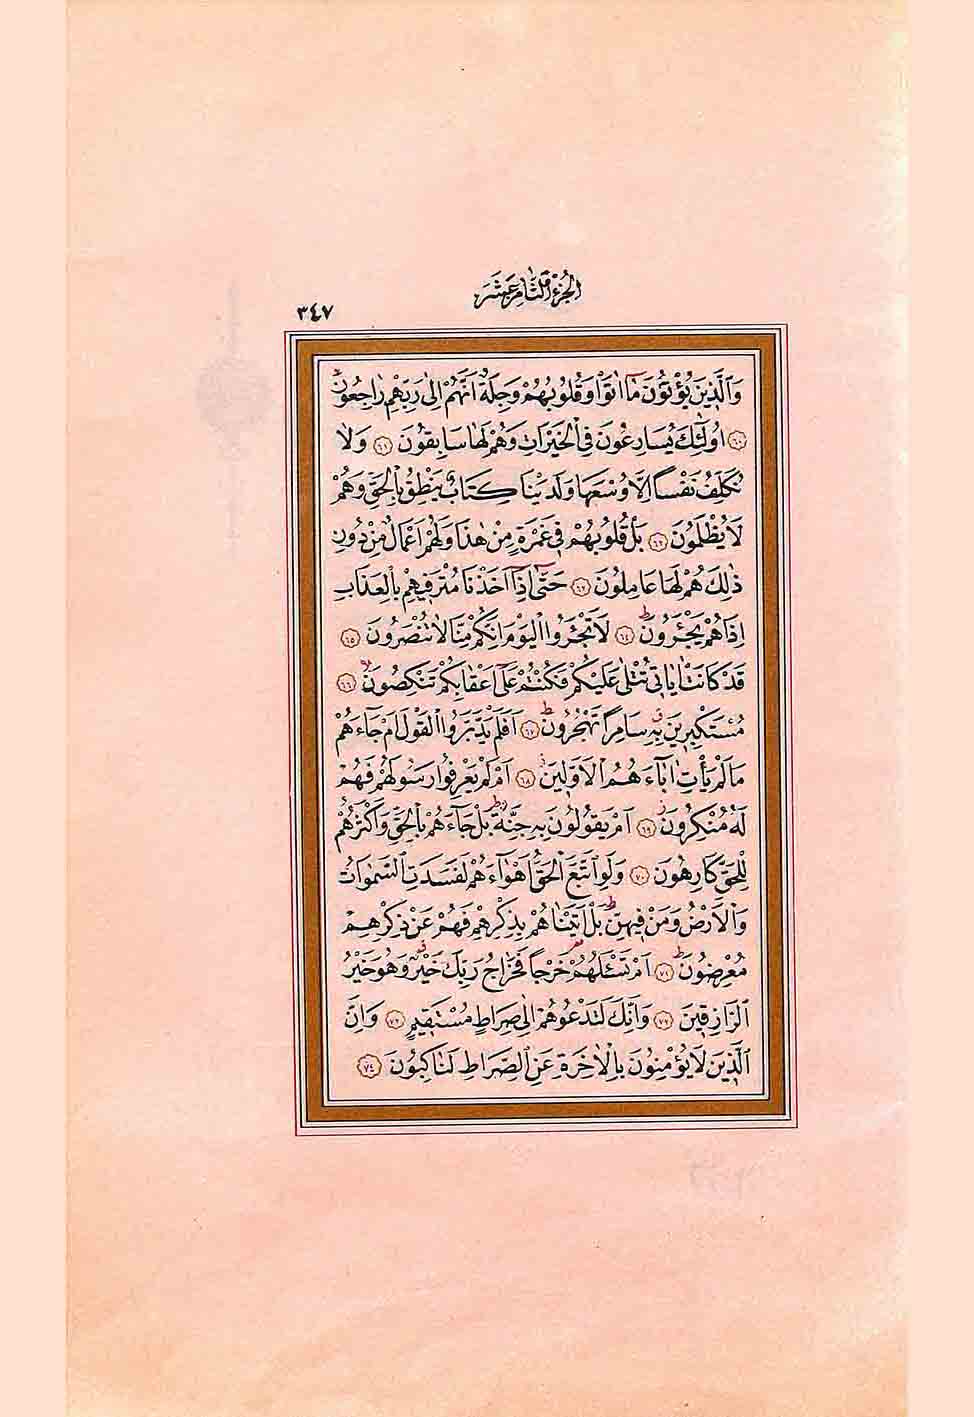 الجزء الثامن عشر
٣٤٧
وَالَّذِينَ يُؤْتُونَ مَٓا اٰتَوْا وَقُلُوبُهُمْ وَجِلَةٌ اَنَّهُمْ اِلٰى رَبِّهِمْ رَاجِعُونَۙ
﴿٦٠﴾ اُولٰٓئِكَ يُسَارِعُونَ فِي الْخَيْرَاتِ وَهُمْ لَهَا سَابِقُونَ ﴿٦١﴾ وَلَا
نُكَلِّفُ نَفْسًا اِلَّا وُسْعَهَا وَلَدَيْنَا كِتَابٌ يَنْطِقُ بِالْحَقِّ وَهُمْ
لَا يُظْلَمُونَ ﴿٦٢﴾ بَلْ قُلُوبُهُمْ فِي غَمْرَةٍ مِنْ هٰذَا وَلَهُمْ اَعْمَالٌ مِنْ دُونِ
ذٰلِكَ هُمْ لَهَا عَامِلُونَ ﴿٦٣﴾ حَتّٰٓى اِذَٓا اَخَذْنَا مُتْرَفِيهِمْ بِالْعَذَابِ
اِذَا هُمْ يَجْـَٔرُونَۜ ﴿٦٤﴾ لَا تَجْـَٔرُوا الْيَوْمَ اِنَّكُمْ مِنَّا لَا تُنْصَرُونَ ﴿٦٥﴾
قَدْ كَانَتْ اٰيَاتِي تُتْلٰى عَلَيْكُمْ فَكُنْتُمْ عَلٰٓى اَعْقَابِكُمْ تَنْكِصُونَۙ ﴿٦٦﴾
مُسْتَكْبِرِينَ بِهِۗ سَامِرًا تَهْجُرُونَۜ ﴿٦٧﴾ اَفَلَمْ يَدَّبَّرُوا الْقَوْلَ اَمْ جَٓاءَهُمْ
مَا لَمْ يَأْتِ اٰبَٓاءَهُمُ الْاَوَّلِينَۘ ﴿٦٨﴾ اَمْ لَمْ يَعْرِفُوا رَسُولَهُمْ فَهُمْ
لَهُ مُنْكِرُونَۘ ﴿٦٩﴾ اَمْ يَقُولُونَ بِهِ جِنَّةٌۜ بَلْ جَٓاءَهُمْ بِالْحَقِّ وَاَكْثَرُهُمْ
لِلْحَقِّ كَارِهُونَ ﴿٧٠﴾ وَلَوِ اتَّبَعَ الْحَقُّ اَهْوَٓاءَهُمْ لَفَسَدَتِ السَّمٰوَاتُ
وَالْاَرْضُ وَمَنْ فِيهِنَّۜ بَلْ اَتَيْنَاهُمْ بِذِكْرِهِمْ فَهُمْ عَنْ ذِكْرِهِمْ
مُعْرِضُونَۜ ﴿٧١﴾ اَمْ تَسْـَٔلُهُمْ خَرْجًا فَخَرَاجُ رَبِّكَ خَيْرٌۗ وَهُوَ خَيْرُ
الرَّازِقِينَ ﴿٧٢﴾ وَاِنَّكَ لَتَدْعُوهُمْ اِلٰى صِرَاطٍ مُسْتَقِيمٍ ﴿٧٣﴾ وَاِنَّ
الَّذِينَ لَا يُؤْمِنُونَ بِالْاٰخِرَةِ عَنِ الصِّرَاطِ لَنَاكِبُونَ ﴿٧٤﴾